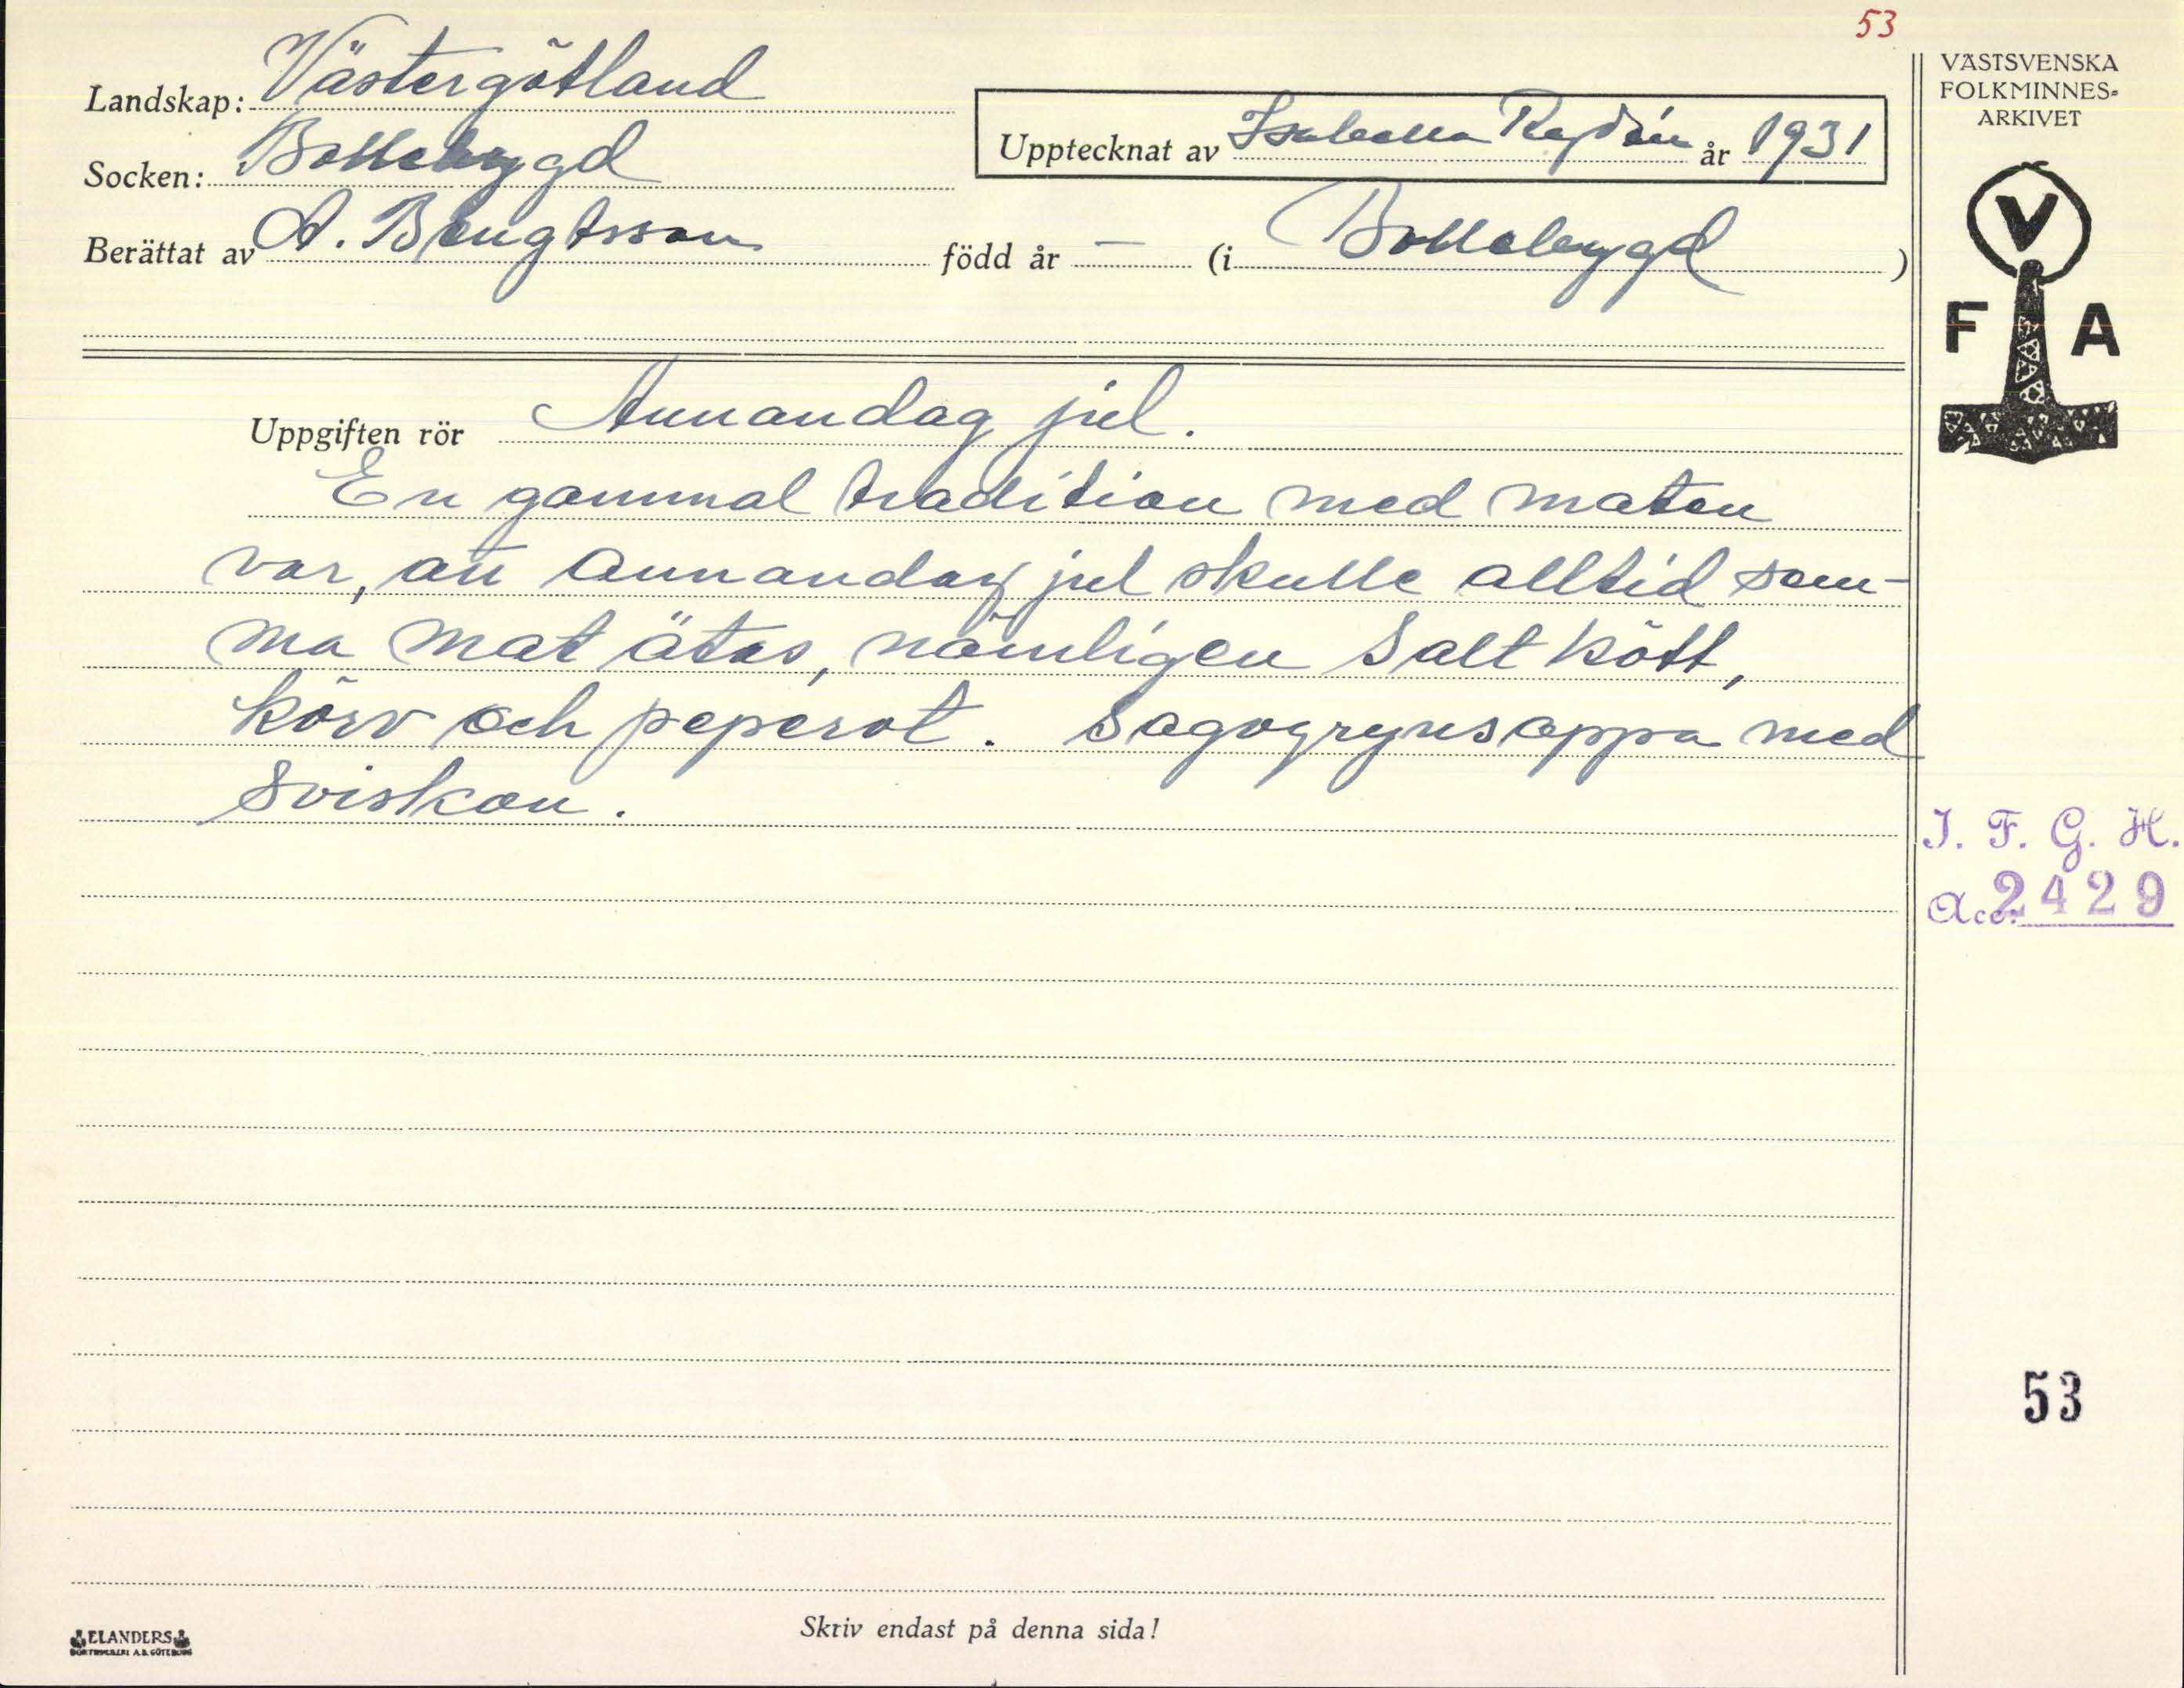 53
Landskap: Västergötland
Socken: Bollebygd
Berättat av A. Bengtsson född år — (i Bollebygd)
Upptecknat av Isabella Rydén år 1931
VÄSTSVENSKA
FOLKMINNES-
ARKIVET
V
F A
Uppgiften rör Annandag jul.
En gammal tradition med maten
var, att Annandag jul skulle alltid sam-
ma mat ätas, nämligen Salt kött,
korv och peperot. Sagogrynsoppa med
Sviskon.
I. F. G. H.
Acc. 2429
53
Skriv endast på denna sida!
ELANDERS
BOKTRYCKERI A.B. GÖTEBORG